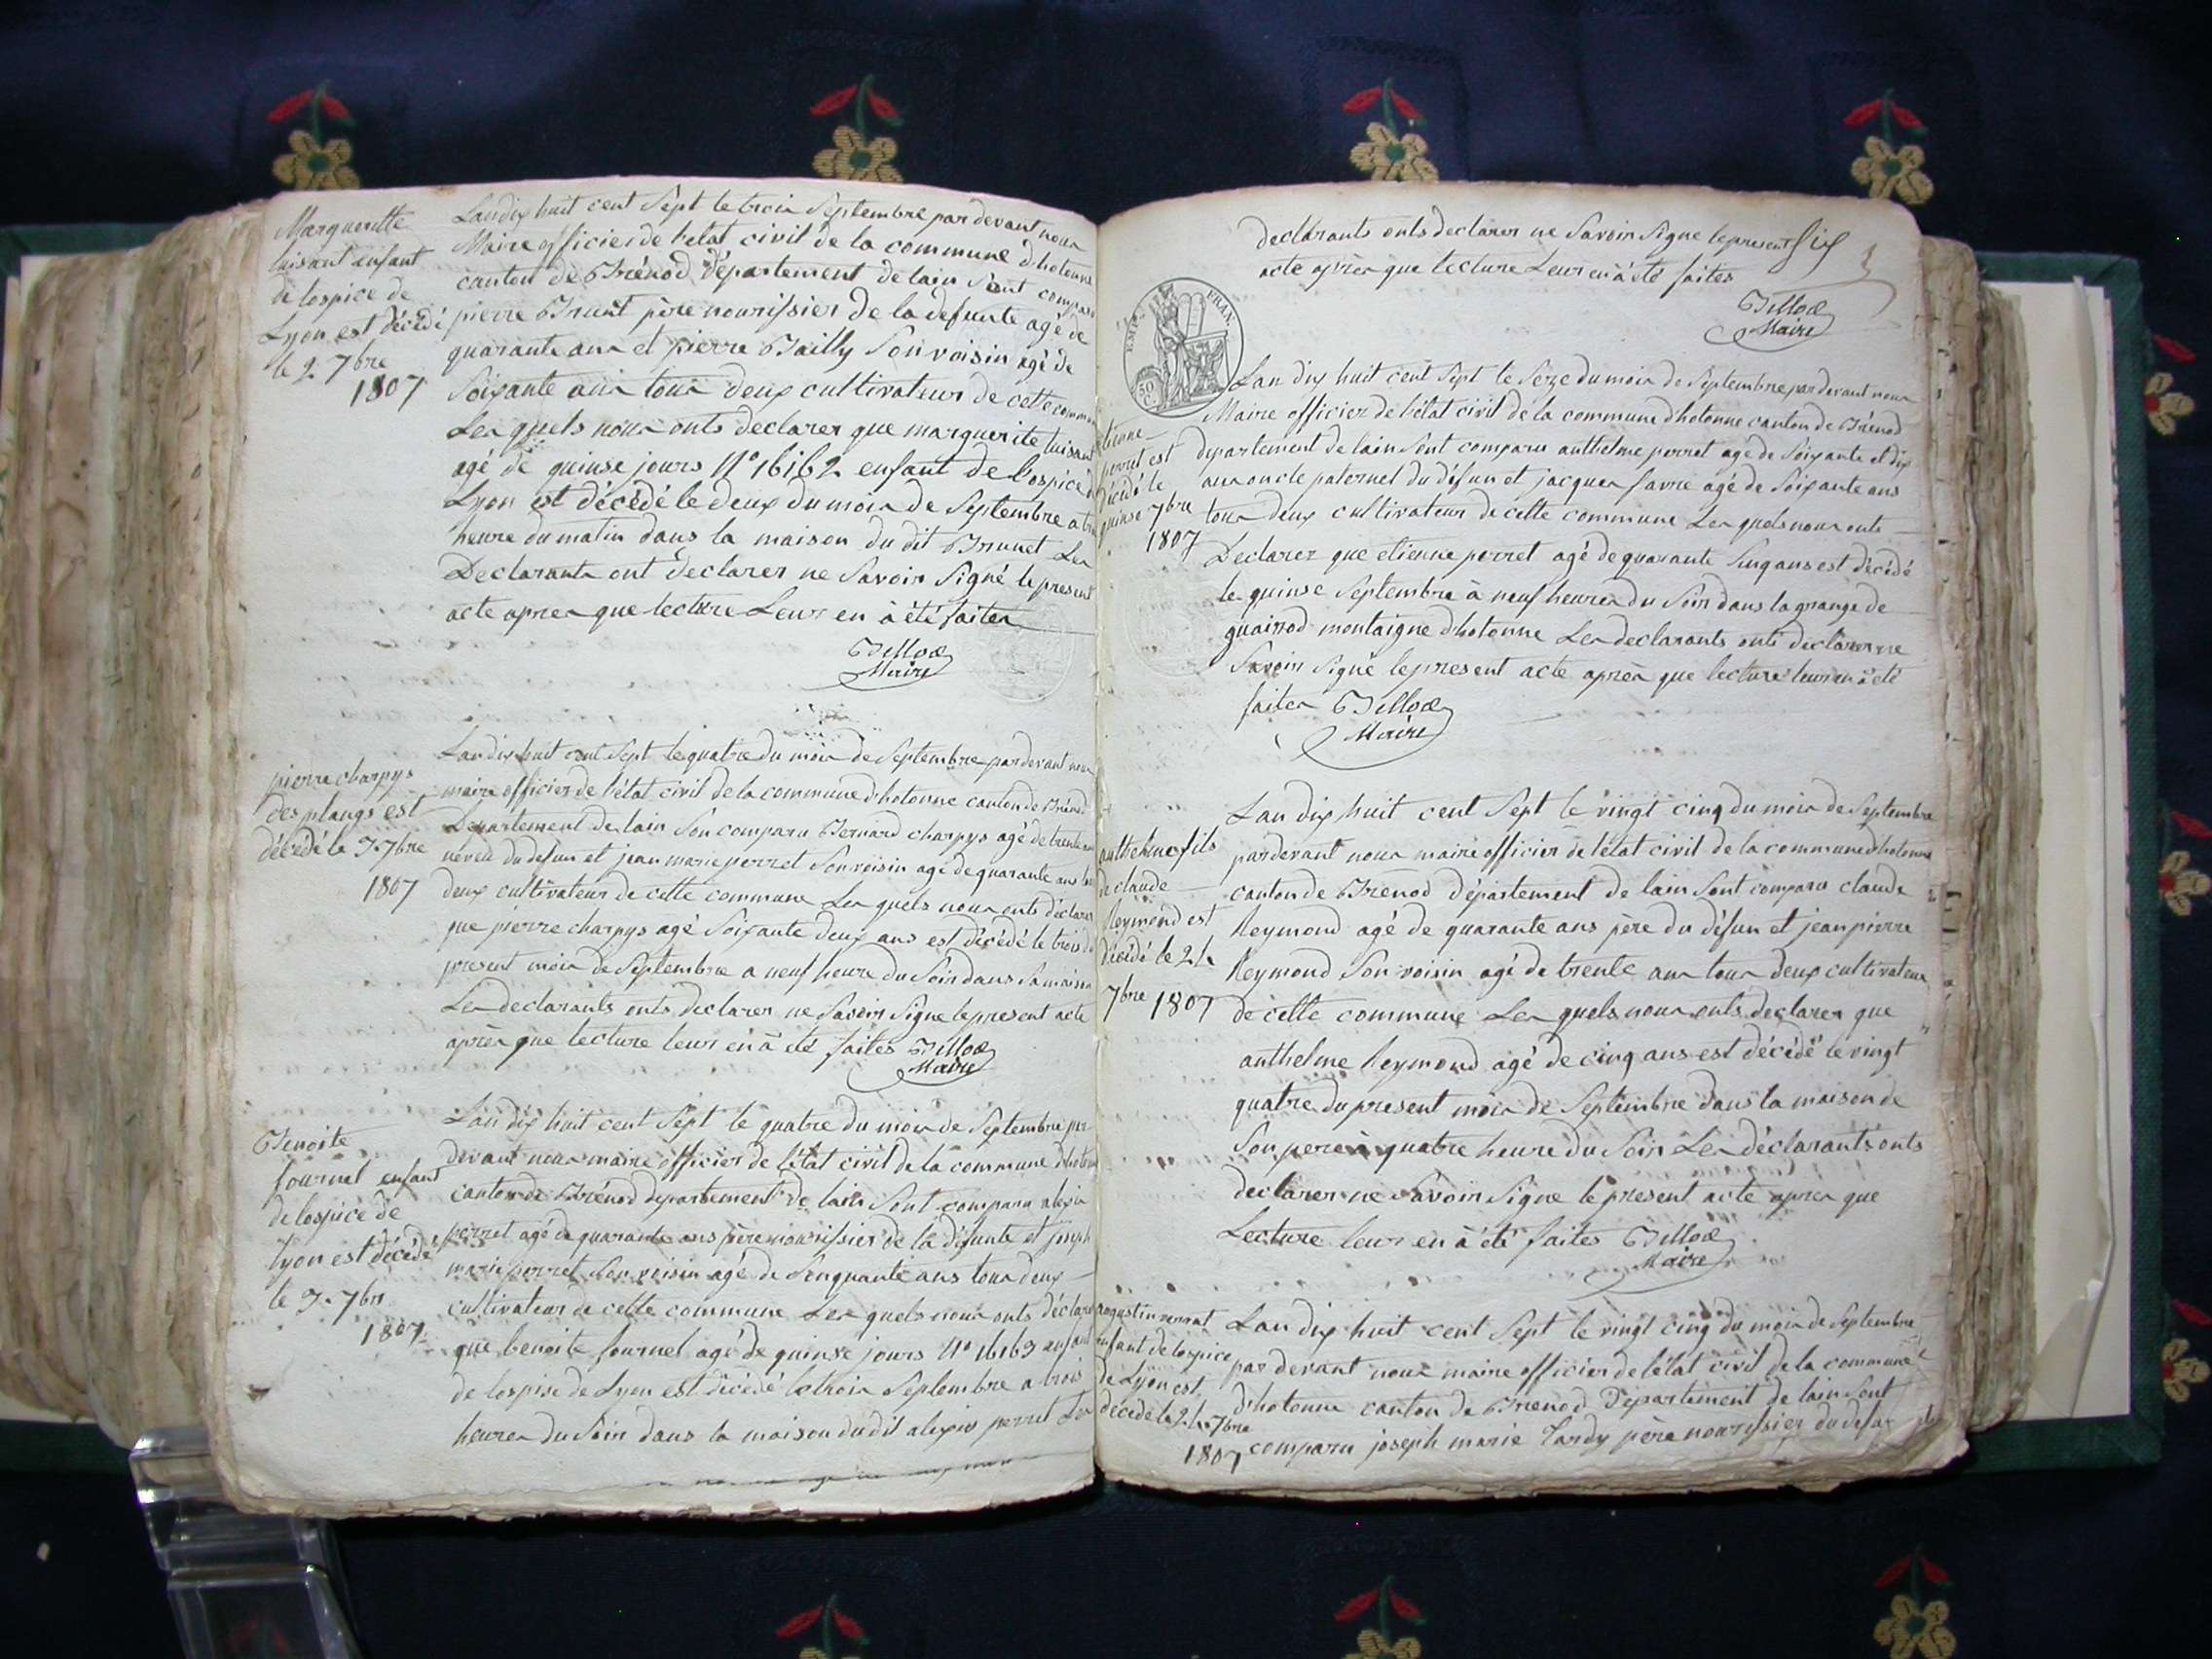 Margueritte
luisant enfant
de lospice de
Lyon est décédé
le 2 7bre
1807
Lan dix huit cent Sept le trois Septembre par devant nous
Maire officier de l'etat civil de la commune dhotonne
canton de Brénod département de lain Sont comparu
pierre Brunet père nourissier de la defunte agé de
quarante ans et pierre Bailly Son voisin agé de
Soixante ans tous deux cultivateur de cette commune
Les quels nous onts declarer que marguerite luisant
agé de quinse jours N° 16162 enfant de lospice de
Lyon est décédé le deux du mois de Septembre a
heure du matin dans la maison du dit Brunet Les
Declarants ont declarer ne Savoir Signé le present
acte apres que lecture Leur en à été faites
Billod
Maire
pierre charpys
des plangs est
décédé le 3 7bre
1807
Lan dix huit cent Sept le quatre du mois de Septembre par devant nous
maire officier de l'état civil de la commune dhotonne canton de Brénod
Departement de lain Son comparu Bernard charpys agé de trente ans
néveu du defun et jean marie perret Son voisin agé de quarante ans tous
deux cultivateur de cette commune Les quels nous onts déclarer
que pierre charpys agé Soixante deux ans est décédé le trois du
present mois de Septembre a neuf heure du Soir dans Sa maison
Les declarants onts declarer ne Savoir Signe le present acte
après que lecture leur en à été faites Billod
Maire
Benoite
fournel enfant
de lospice de
lyon est décédé
le 3 7bre
1807
Lan dix huit cent Sept le quatre du mois de Septembre par
devant nous maire officier de l'état civil de la commune dhotonne
canton de Brénod departement de lain Sont comparu alexis
perret agé de quarante ans père nourissier de la défunte et joseph
marie perret Son voisin agé de Senquante ans tous deux
cultivateur de cette commune Les quels nous onts déclarer
que benoite fournel agé de quinse jours N° 16163 enfant
de lospise de Lyon est décédé le trois Septembre a trois
heures du Soir dans la maison du dit alexis perret Les
declarants onts declarer ne Savoir Signe le present Six
acte après que lecture Leur en à été faites
Billod
Maire
EMP. FRAN.
50 C.
etienne
perret est
décédé le
quinse 7bre
1807
Lan dix huit cent Sept le Seze du mois de Septembre par devant nous
Maire officier de l'état civil de la commune dhotonne canton de Brénod
departement de lain Sont comparu anthelme perret agé de Soixante et dix
ans oncle paternel du défun et jacques favre agé de Soixante ans
tous deux cultivateur de cette commune Les quels nous onts
Declarez que etienne perret agé de quarante Sinq ans est décédé
le quinse Septembre à neuf heures du Soir dans la grange de
guairrod montaigne dhotonne Les declarants onts declarer ne
Savoir Signé le present acte après que lecture leur en à été
faites Billod
Maire
anthelme fils
de claude
Reymond est
décédé le 24
7bre 1807
Lan dix huit cent Sept le vingt cinq du mois de Septembre
par devant nous maire officier de l'état civil de la commune dhotonne
canton de Brénod département de lain Sont comparu claude
Reymond agé de quarante ans père du défun et jean pierre
Reymond Son voisin agé de trente ans tous deux cultivateur
de cette commune Les quels nous onts declarer que
anthelme Reymond agé de cinq ans est décédé le vingt
quatre du present mois de Septembre dans la maison de
Son pere à quatre heure du Soir Les déclarants onts
declarer ne Savoir Signe le present acte apres que
Lecture leur en à été faites Billod
Maire
enfant de lospice
de Lyon est
décédé le 24 7bre
1807
Lan dix huit cent Sept le vingt cinq du mois de Septembre
par devant nous maire officier de l'état civil de la commune
d'hotonne canton de Brenod Departement de lain Sont
comparu joseph marie Tardy père nourissier du defun